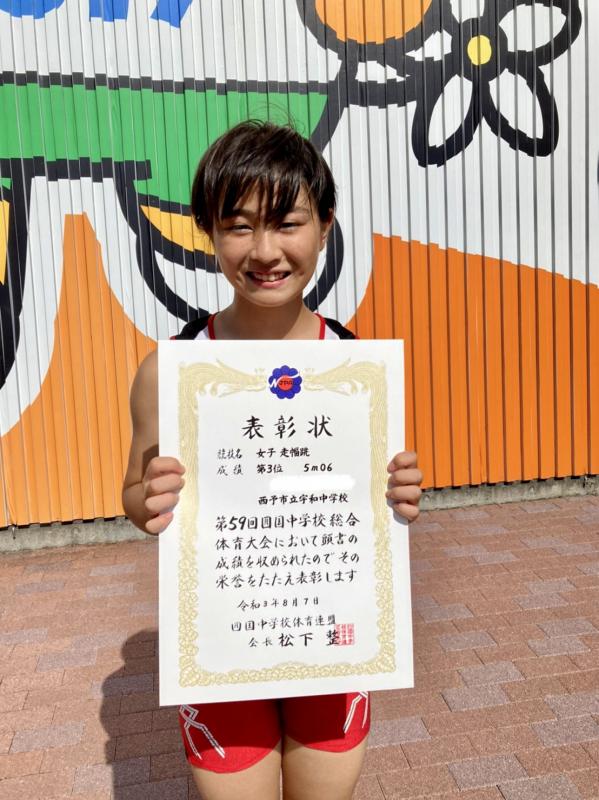 表彰状
競技名 女子 走幅跳
成績 第3位 5m06
西予市立宇和中学校
第59回四国中学校総合
体育大会において頭書の
成績を収められたのでその
栄誉をたたえ表彰します
令和3年8月7日
四国中学校体育連盟
会長 松下 整